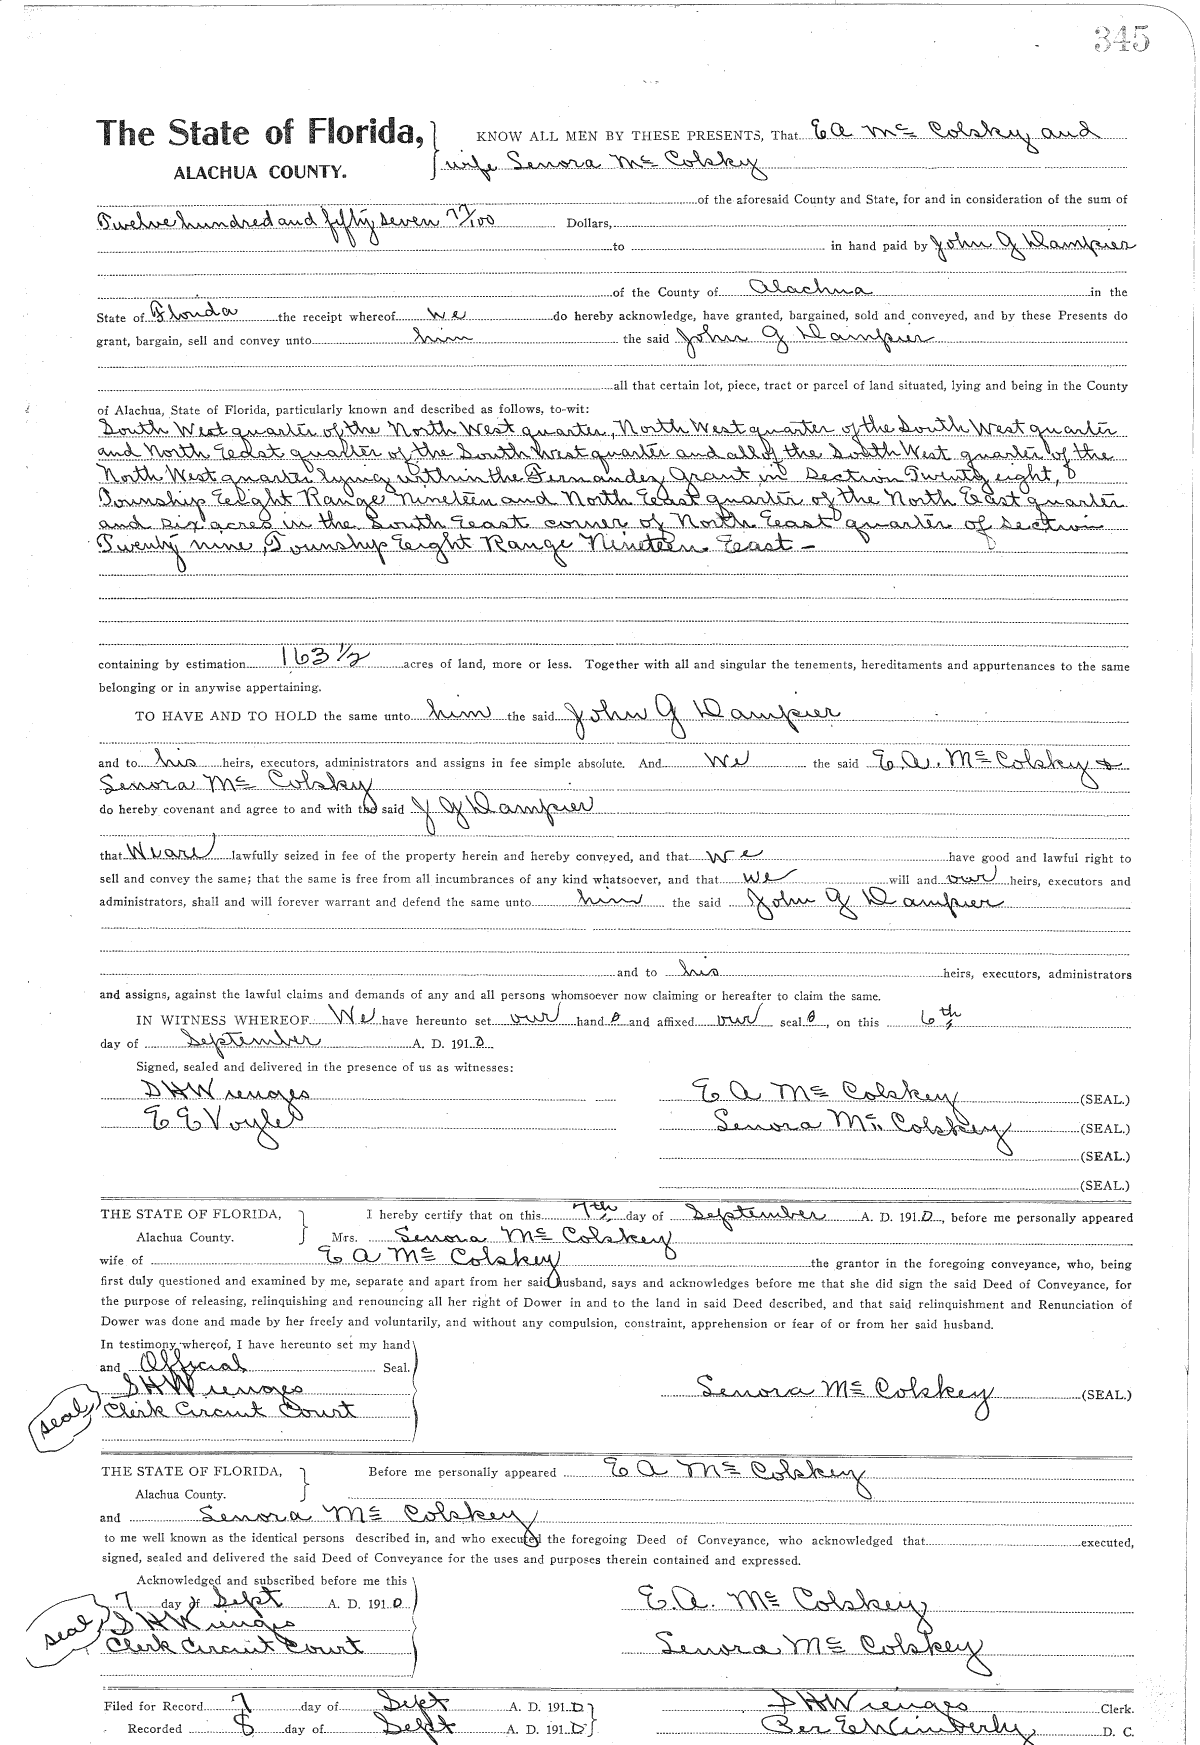 345
The State of Florida, KNOW ALL MEN BY THESE PRESENTS, That E A Mc Colsky and
ALACHUA COUNTY. wife Senora Mc Colsky
of the aforesaid County and State, for and in consideration of the sum of
Twelve hundred and fifty seven 77/100 Dollars,
to in hand paid by John G Dampier
of the County of Alachua in the
State of Florida the receipt whereof we do hereby acknowledge, have granted, bargained, sold and conveyed, and by these Presents do
grant, bargain, sell and convey unto him the said John G Dampier
all that certain lot, piece, tract or parcel of land situated, lying and being in the County
of Alachua, State of Florida, particularly known and described as follows, to-wit:
South West quarter of the North West quarter, North West quarter of the South West quarter
and North East quarter of the South West quarter and all of the South West quarter of the
North West quarter lying within the Fernandez Grant in Section Twenty eight,
Township Eight Range Nineteen and North East quarter of the North East quarter
and six acres in the South East corner of North East quarter of section
Twenty nine, Township Eight Range Nineteen East —
containing by estimation 163 1/2 acres of land, more or less. Together with all and singular the tenements, hereditaments and appurtenances to the same
belonging or in anywise appertaining.
TO HAVE AND TO HOLD the same unto him the said John G Dampier
and to his heirs, executors, administrators and assigns in fee simple absolute. And we the said E.A. McColsky &
Senora Mc Colsky
do hereby covenant and agree to and with the said J G Dampier
that We are lawfully seized in fee of the property herein and hereby conveyed, and that we have good and lawful right to
sell and convey the same; that the same is free from all incumbrances of any kind whatsoever, and that we will and our heirs, executors and
administrators, shall and will forever warrant and defend the same unto him the said John G Dampier
and to his heirs, executors, administrators
and assigns, against the lawful claims and demands of any and all persons whomsoever now claiming or hereafter to claim the same.
IN WITNESS WHEREOF We have hereunto set our hands and affixed our seals, on this 6th
day of September A. D. 1910
Signed, sealed and delivered in the presence of us as witnesses:
S H Wienges E A Mc Colskey (SEAL.)
E E Voyle Senora Mc Colskey (SEAL.)
(SEAL.)
(SEAL.)
THE STATE OF FLORIDA, I hereby certify that on this 7th day of September A. D. 1910, before me personally appeared
Alachua County. Mrs. Senora Mc Colskey
wife of E A Mc Colskey the grantor in the foregoing conveyance, who, being
first duly questioned and examined by me, separate and apart from her said husband, says and acknowledges before me that she did sign the said Deed of Conveyance, for
the purpose of releasing, relinquishing and renouncing all her right of Dower in and to the land in said Deed described, and that said relinquishment and Renunciation of
Dower was done and made by her freely and voluntarily, and without any compulsion, constraint, apprehension or fear of or from her said husband.
In testimony whereof, I have hereunto set my hand
and Official Seal.
S H Wienges Senora Mc Colskey (SEAL.)
seal Clerk Circuit Court
THE STATE OF FLORIDA, Before me personally appeared E A Mc Colskey
Alachua County.
and Senora Mc Colskey
to me well known as the identical persons described in, and who executed the foregoing Deed of Conveyance, who acknowledged that executed,
signed, sealed and delivered the said Deed of Conveyance for the uses and purposes therein contained and expressed.
Acknowledged and subscribed before me this
7 day of Sept A. D. 1910 E.A. Mc Colskey
S H Wienges
seal Clerk Circuit Court Senora Mc Colskey
Filed for Record 7 day of Sept A. D. 1910 S H Wienges Clerk.
Recorded 8 day of Sept A. D. 1910 Per E Wimberly D. C.